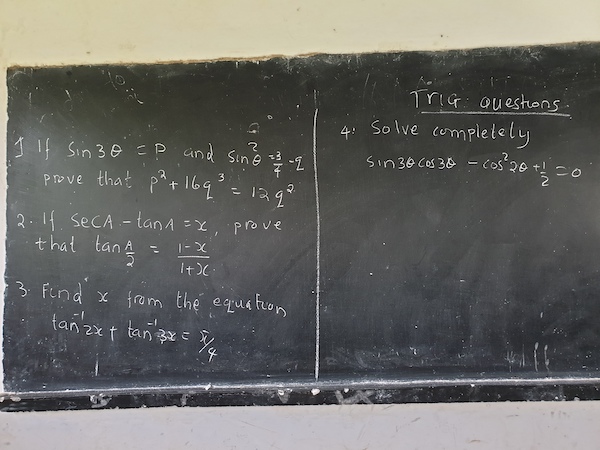 1) If sin3θ = P and sin²θ = 3/4 - q
prove that p² + 16q³ = 12q²
2. If secA - tanA = x, prove
that tan A/2 = 1-x/1+x
3. Find x from the equation
tan⁻¹2x + tan⁻¹3x = π/4
TRIG questions
4. Solve completely
sin3θcos3θ - cos²2θ + 1/2 = 0